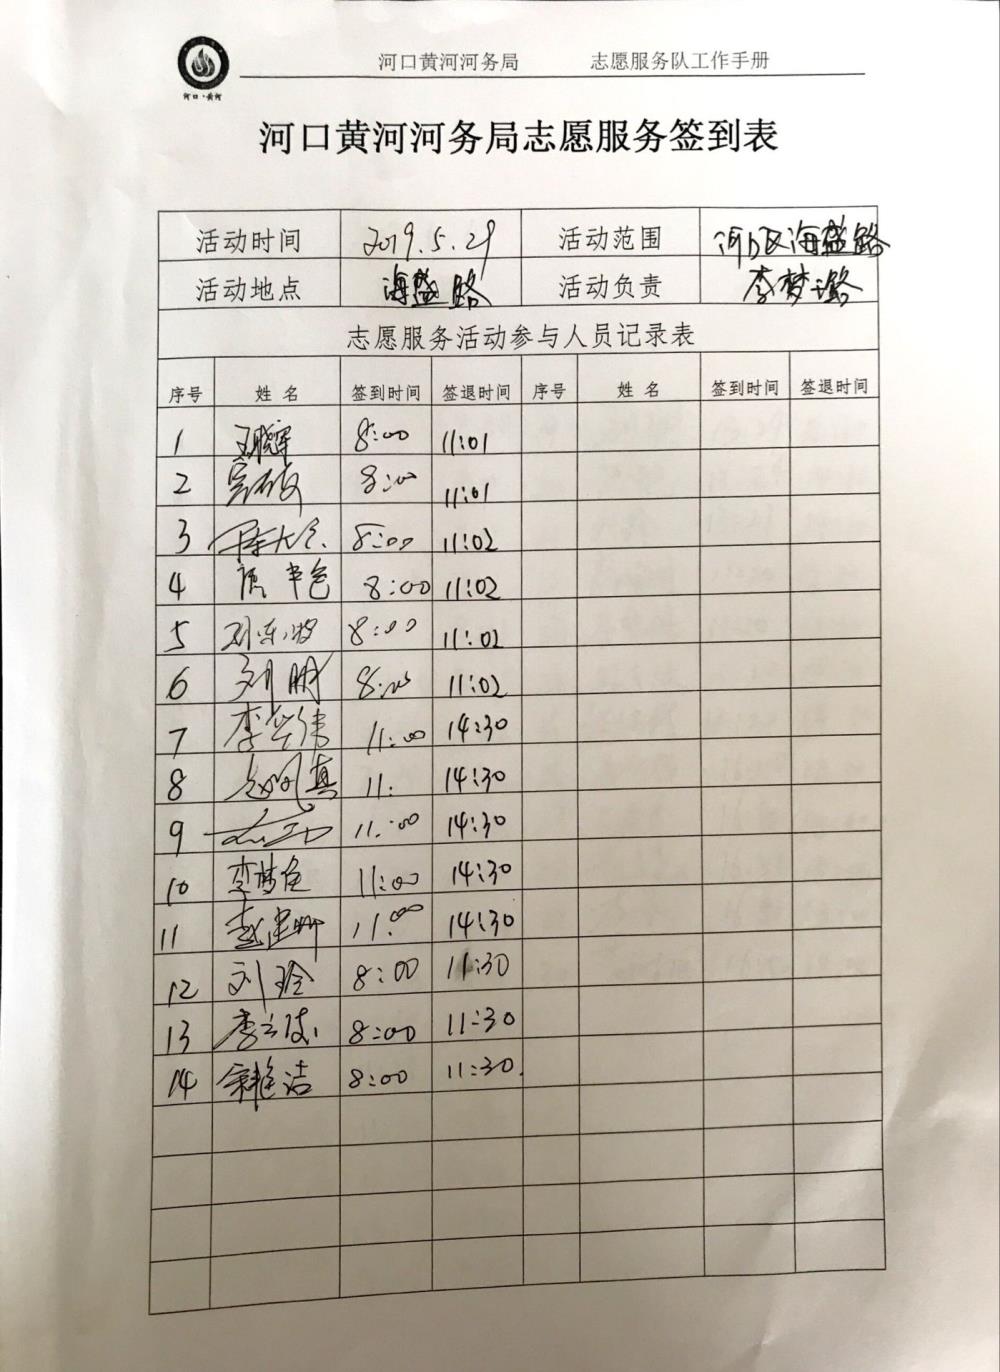 河口·黄河
河口黄河河务局 志愿服务队工作手册
河口黄河河务局志愿服务签到表
活动时间 2019.5.29 活动范围 河口区海盛路
活动地点 海盛路 活动负责 李梦璐
志愿服务活动参与人员记录表
序号 姓名 签到时间 签退时间 序号 姓名 签到时间 签退时间
1 王晓军 8:00 11:01
2 8:00 11:01
3 8:00 11:02
4 8:00 11:02
5 刘东波 8:00 11:02
6 刘鹏 8:00 11:02
7 李兴伟 11:00 14:30
8 11: 14:30
9 11:00 14:30
10 11:00 14:30
11 11:00 14:30
12 刘玲 8:00 11:30
13 8:00 11:30
14 8:00 11:30.